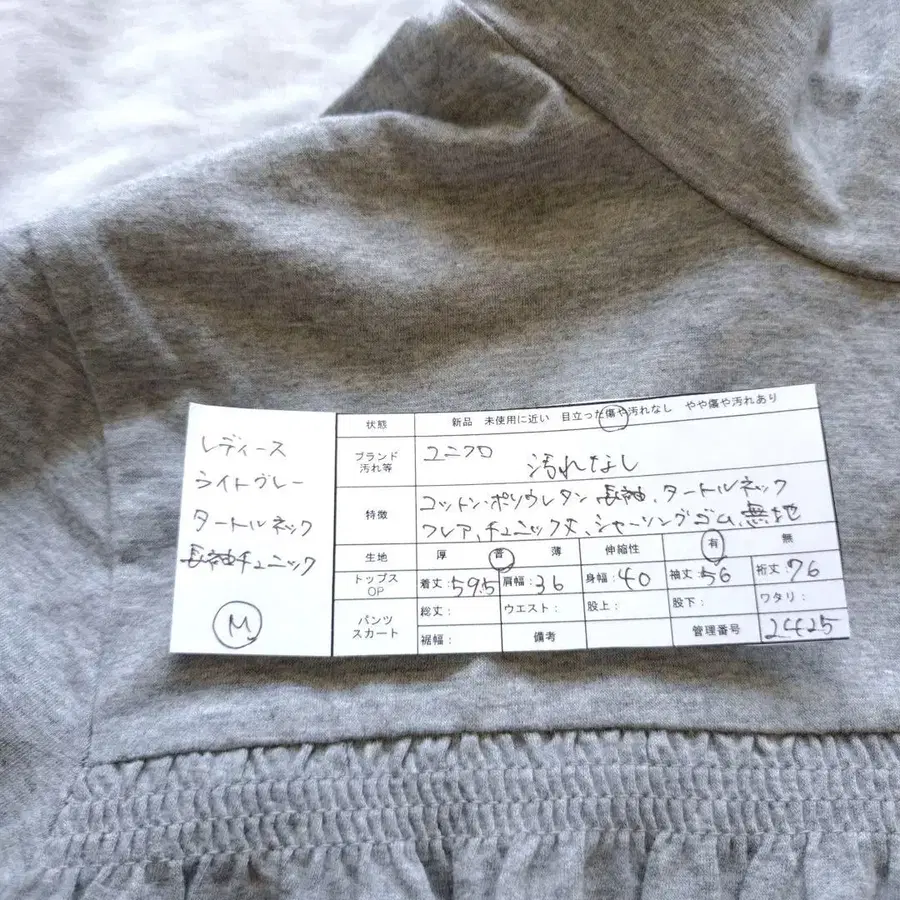 レディース
ライトグレー
タートルネック
長袖チュニック
M
状態 新品 未使用に近い 目立った傷や汚れなし やや傷や汚れあり
ブランド 汚れ等 ユニクロ 汚れなし
特徴 コットン・ポリウレタン 長袖、タートルネック
フレア、チュニック丈、シャーリングゴム、無地
生地 厚 普 薄 伸縮性 有 無
トップス OP 着丈:59.5 肩幅:36 身幅:40 袖丈:56 裄丈:76
パンツ スカート 総丈: ウエスト: 股上: 股下: ワタリ:
裾幅: 備考 管理番号 2425